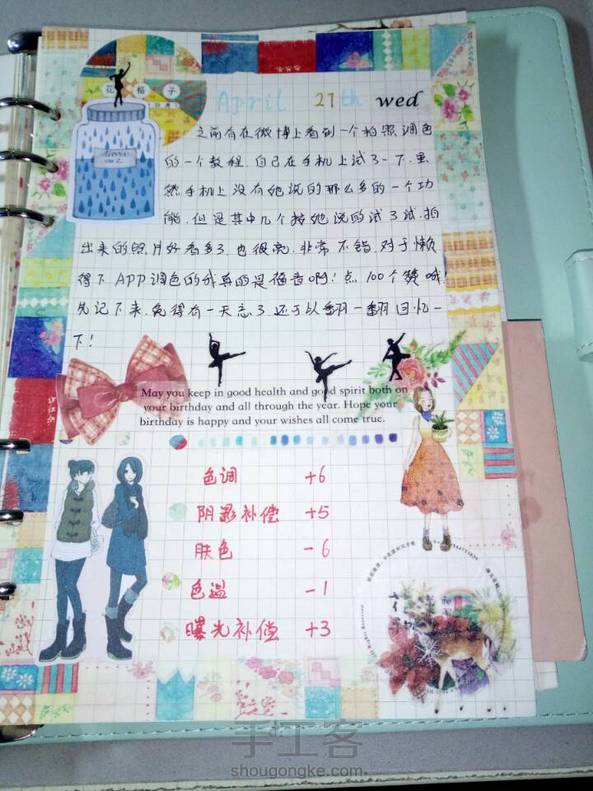 花格子
April 27th wed
之前有在微博上看到一个拍照调色
的一个教程 自己在手机上试了一下.虽
然手机上没有她说的那么多的一个功
能.但是其中几个按她说的试了试.拍
出来的照片好看多了.也很亮.非常不错.对于懒
得下APP调色的我真的是福音啊！点100个赞哦！
先记下来.免得有一天忘了.还可以翻一翻回忆一
下！
May you keep in good health and good spirit both on
your birthday and all through the year. Hope your
birthday is happy and your wishes all come true.
色调 +6
阴影补偿 +5
肤色 -6
色温 -1
曝光补偿 +3
手工客
shougongke.com